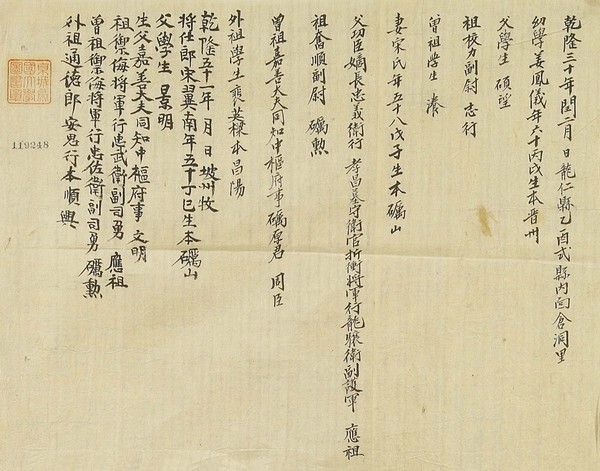 乾隆三十年閏二月 日龍仁縣乙酉式縣內面洞里
幼學姜鳳儀年六十丙戌生本晋州
父學生 碩望
祖校力副尉 志行
曾祖學生
妻宋氏年五十八戊子生本礪山
父功臣嫡長忠義衛行 孝昌墓守衛官折衝將軍行龍驤衛副護軍 應祖
祖奮順副尉 礪勲
曾祖嘉善大夫同知中樞府事礪原君 周臣
外祖學生裵英樑本昌陽
乾隆五十一年 月 日坡州牧
將仕郎宋翼南年五十丁巳生本礪山
父學生 景明
生父嘉善大夫同知中樞府事 文明
祖禦侮將軍行忠武衛副司勇 應祖
曾祖禦侮將軍行忠佐衛副司勇 礪勲
外祖通德郎安思行本順興
119248